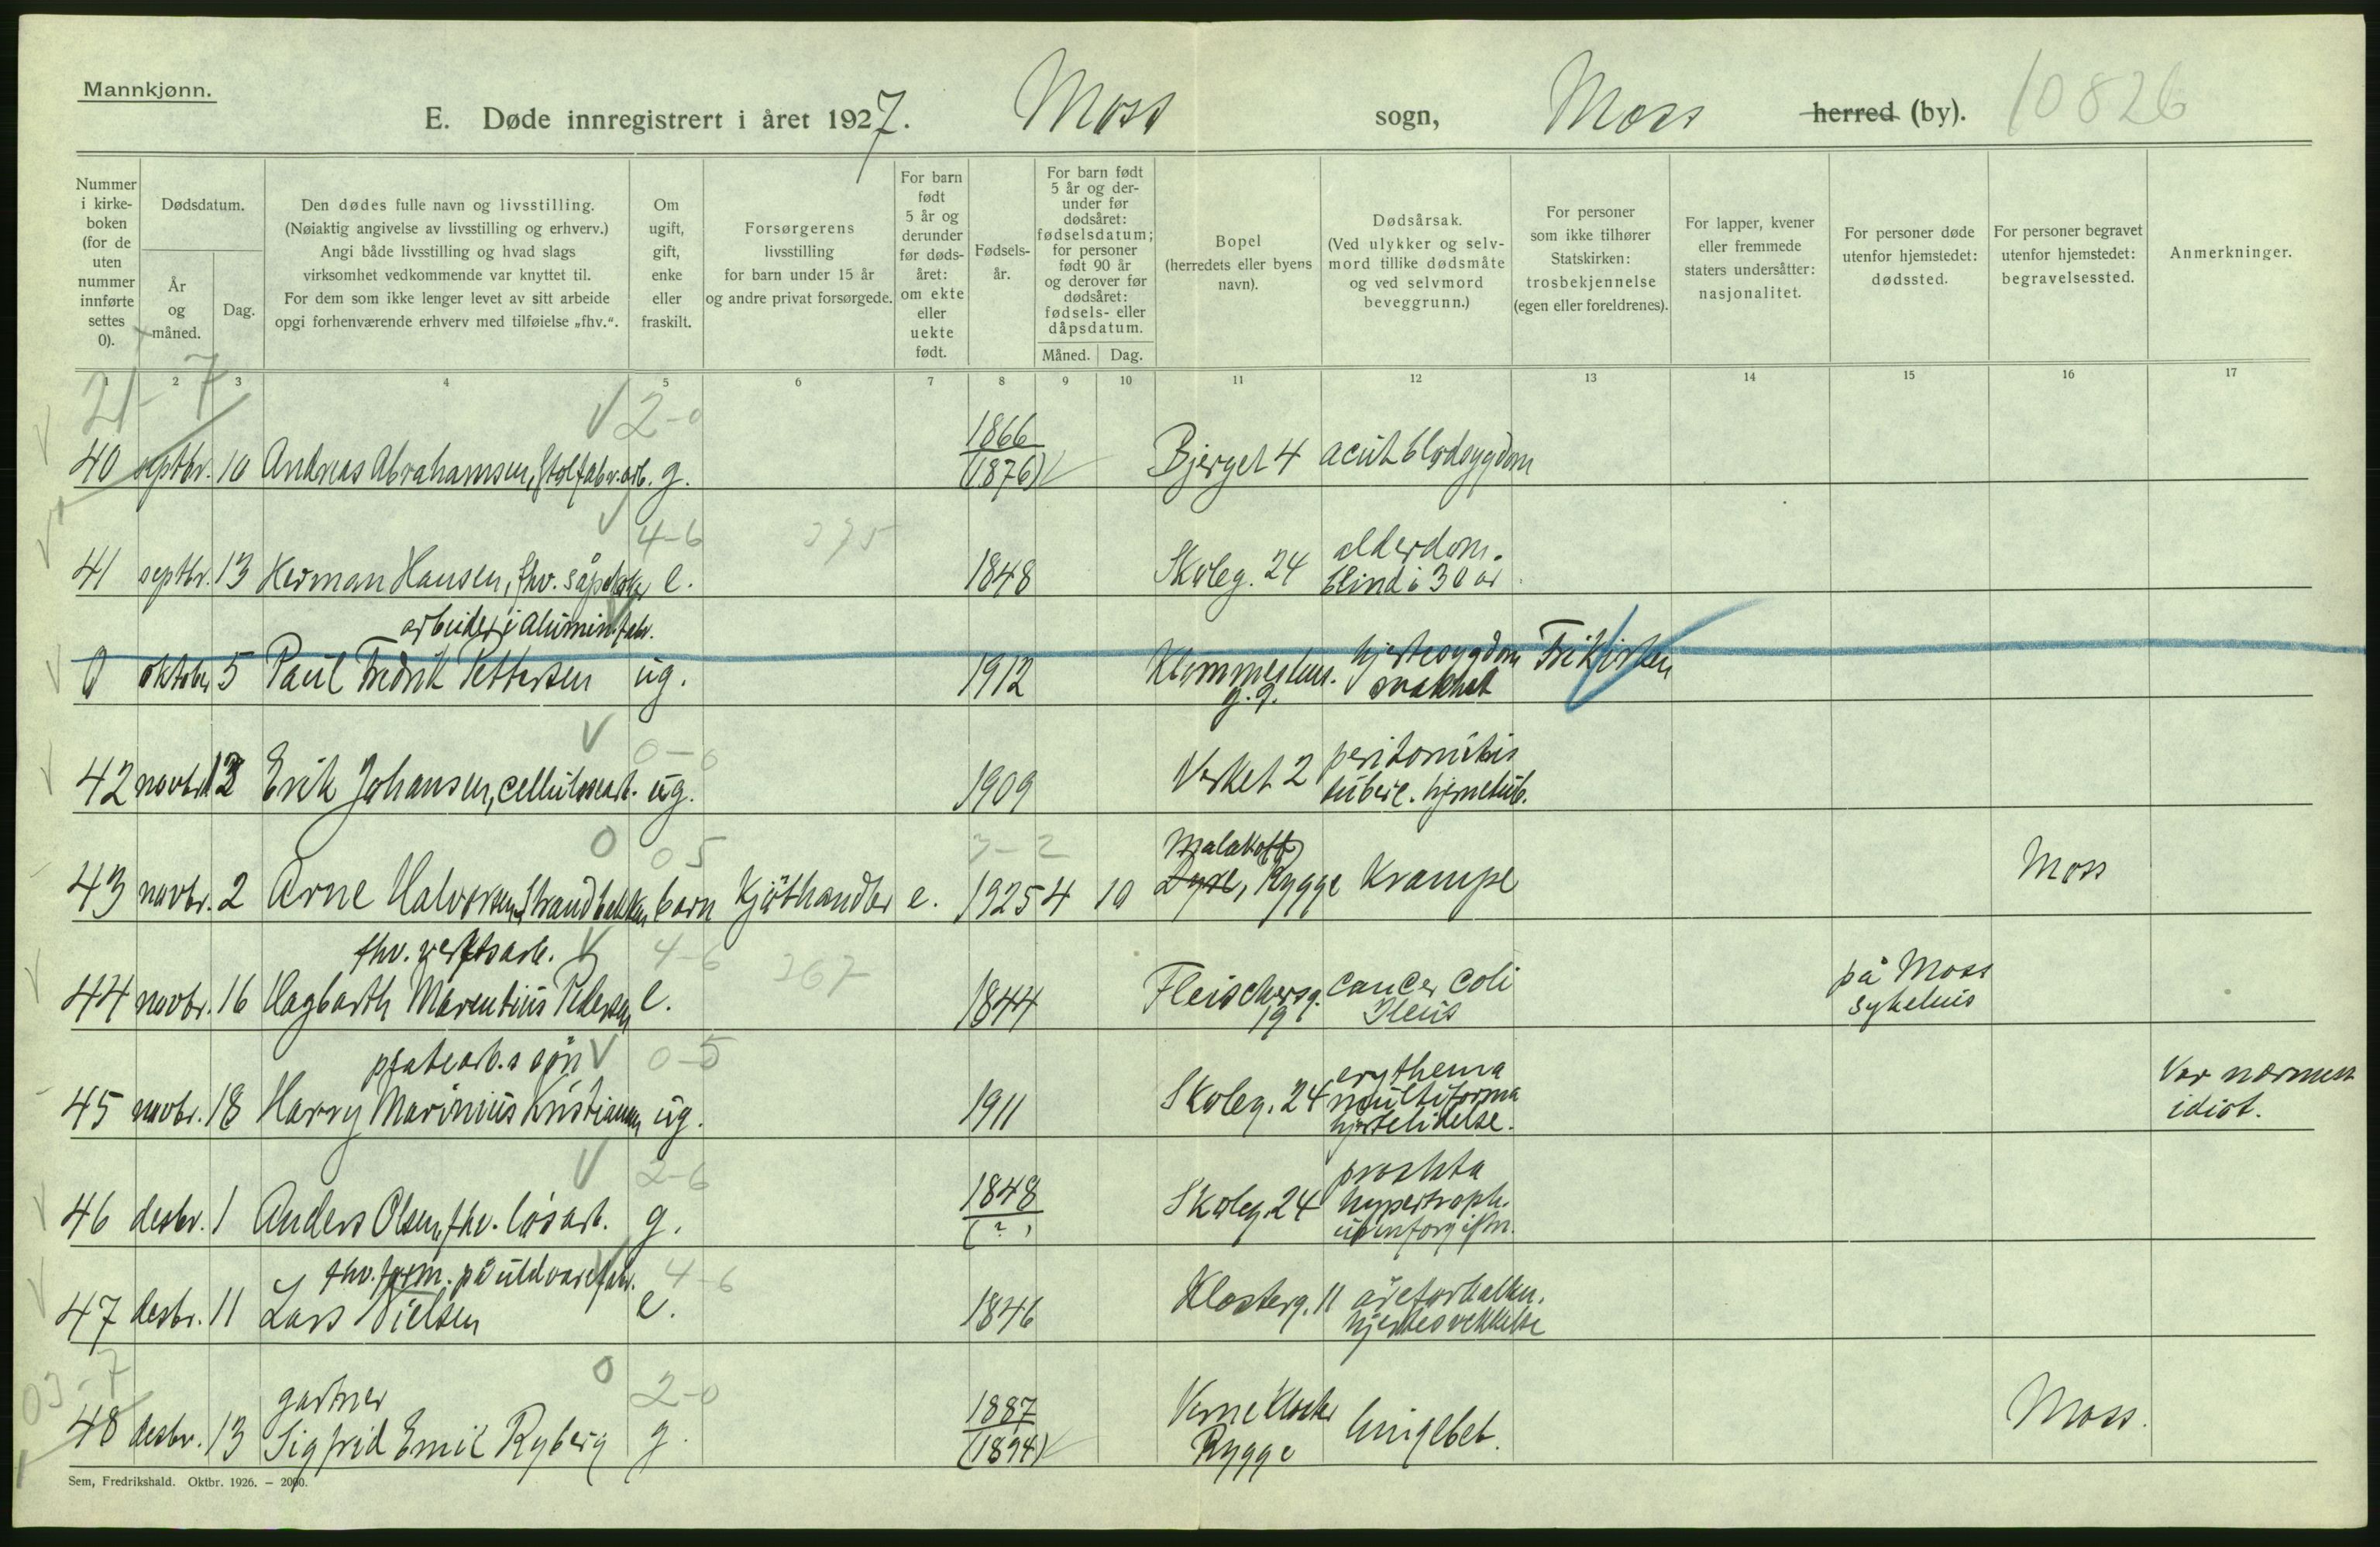 Mannkjønn.
E. Døde innregistrert i året 1927. Moss sogn, Moss herred (by). 10826
Nummer i kirke-boken (for de uten nummer innførte settes 0).
Dødsdatum.
År og måned.
Dag.
Den dødes fulle navn og livsstilling.
(Nøiaktig angivelse av livsstilling og erhverv.)
Angi både livsstilling og hvad slags
virksomhet vedkommende var knyttet til.
For dem som ikke lenger levet av sitt arbeide
opgi forhenværende erhverv med tilføielse „fhv.“.
Om ugift, gift, enke eller fraskilt.
Forsørgerens
livsstilling
for barn under 15 år
og andre privat forsørgede.
For barn født 5 år og derunder før døds-året: om ekte eller uekte født.
Fødsels-år.
For barn født 5 år og der-under før dødsåret: fødselsdatum; for personer født 90 år og derover før dødsåret: fødsels- eller dåpsdatum.
Måned. Dag.
Bopel
(herredets eller byens
navn).
Dødsårsak.
(Ved ulykker og selv-
mord tillike dødsmåte
og ved selvmord
beveggrunn.)
For personer
som ikke tilhører
Statskirken:
trosbekjennelse
(egen eller foreldrenes).
For lapper, kvener
eller fremmede
staters undersåtter:
nasjonalitet.
For personer døde
utenfor hjemstedet:
dødssted.
For personer begravet
utenfor hjemstedet:
begravelsessted.
Anmerkninger.
1 2 3 4 5 6 7 8 9 10 11 12 13 14 15 16 17
21-7 2-0
40 septbr. 10 Andreas Abrahamsen, stolfabr.arb. g. 1866 (1876) Bjerget 4 acut blodsygdom
4-6 375
41 septbr. 13 Herman Hansen, fhv. e. 1848 Skoleg. 24 alderdom. blind i 30 år
arbeider i alumin.fabr.
0 oktober 5 Paul Fredrik Pettersen ug. 1912 g. 9. hjertesygdom svakhet Frikirken
0-6
42 novbr. 12 Erik Johansen, cellulosearb. ug. 1909 Verket 2 peritonitis tuberc. hjernetub.
0 05 3-2
43 novbr. 2 Arne Halvorsen Strandbakken barn Kjøthandler e. 1925 4 10 Malakoff Rygge Krampe Moss
fhv. verftsarb. 4-6 267
44 novbr. 16 Hagbarth Marentius Pedersen e. 1844 Fleischersg. 19 cancer coli Ileus på Moss sykehus
0-5
45 novbr. 18 Harry Marinius Kristiansen ug. 1911 Skoleg. 24 erythema multiforma hjertelidelse. Var nærmest idiot.
2-6
46 desbr. 1 Anders Olsen, fhv. løsarb. g. 1848 (?) Skoleg. 24 prostata hypertroph. urinforgiftn.
fhv. form. på uldvarefabr. 4-6
47 desbr. 11 Lars Nielsen e. 1846 Klosterg. 11 åreforkalkn. hjertesvekkelse
03-7 0 2-0
gartner
48 desbr. 13 Sigfrid Emil Ryberg g. 1887 (1894) Verne Kloster Rygge lungebet. Moss.
Sem, Fredrikshald. Oktbr. 1926. – 2000.